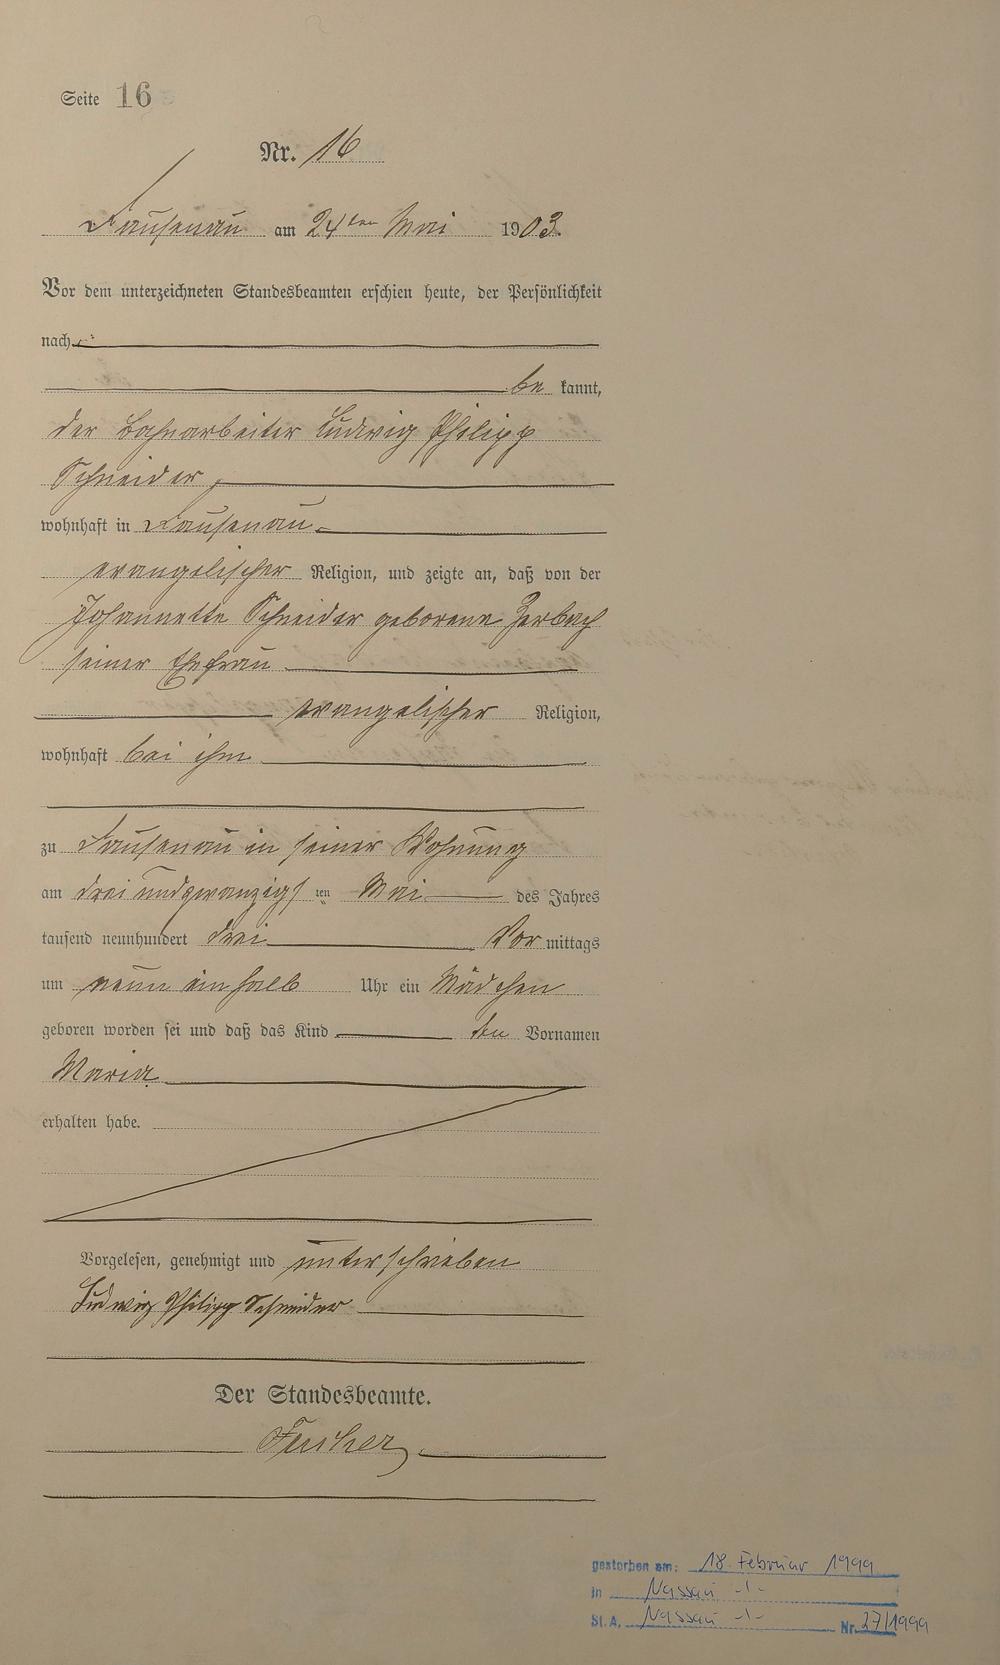 Seite 16
Nr. 16
Dausenau am 24ten Mai 1903.
Vor dem unterzeichneten Standesbeamten erschien heute, der Persönlichkeit
nach
be kannt,
der Bahnarbeiter Ludwig Philipp
Schneider,
wohnhaft in Dausenau
evangelischer Religion, und zeigte an, daß von der
Johannette Schneider geborene Zerbach
seiner Ehefrau
evangelischer Religion,
wohnhaft bei ihm
zu Dausenau in seiner Wohnung
am dreiundzwanzigs ten Mai des Jahres
tausend neunhundert drei Vor mittags
um neun ein halb Uhr ein Mädchen
geboren worden sei und daß das Kind den Vornamen
Maria
erhalten habe.
Vorgelesen, genehmigt und unterschrieben
Ludwig Philipp Schneider
Der Standesbeamte.
gestorben am: 18. Februar 1999
in Nassau -/-
St.A. Nassau -/- Nr. 27/1999